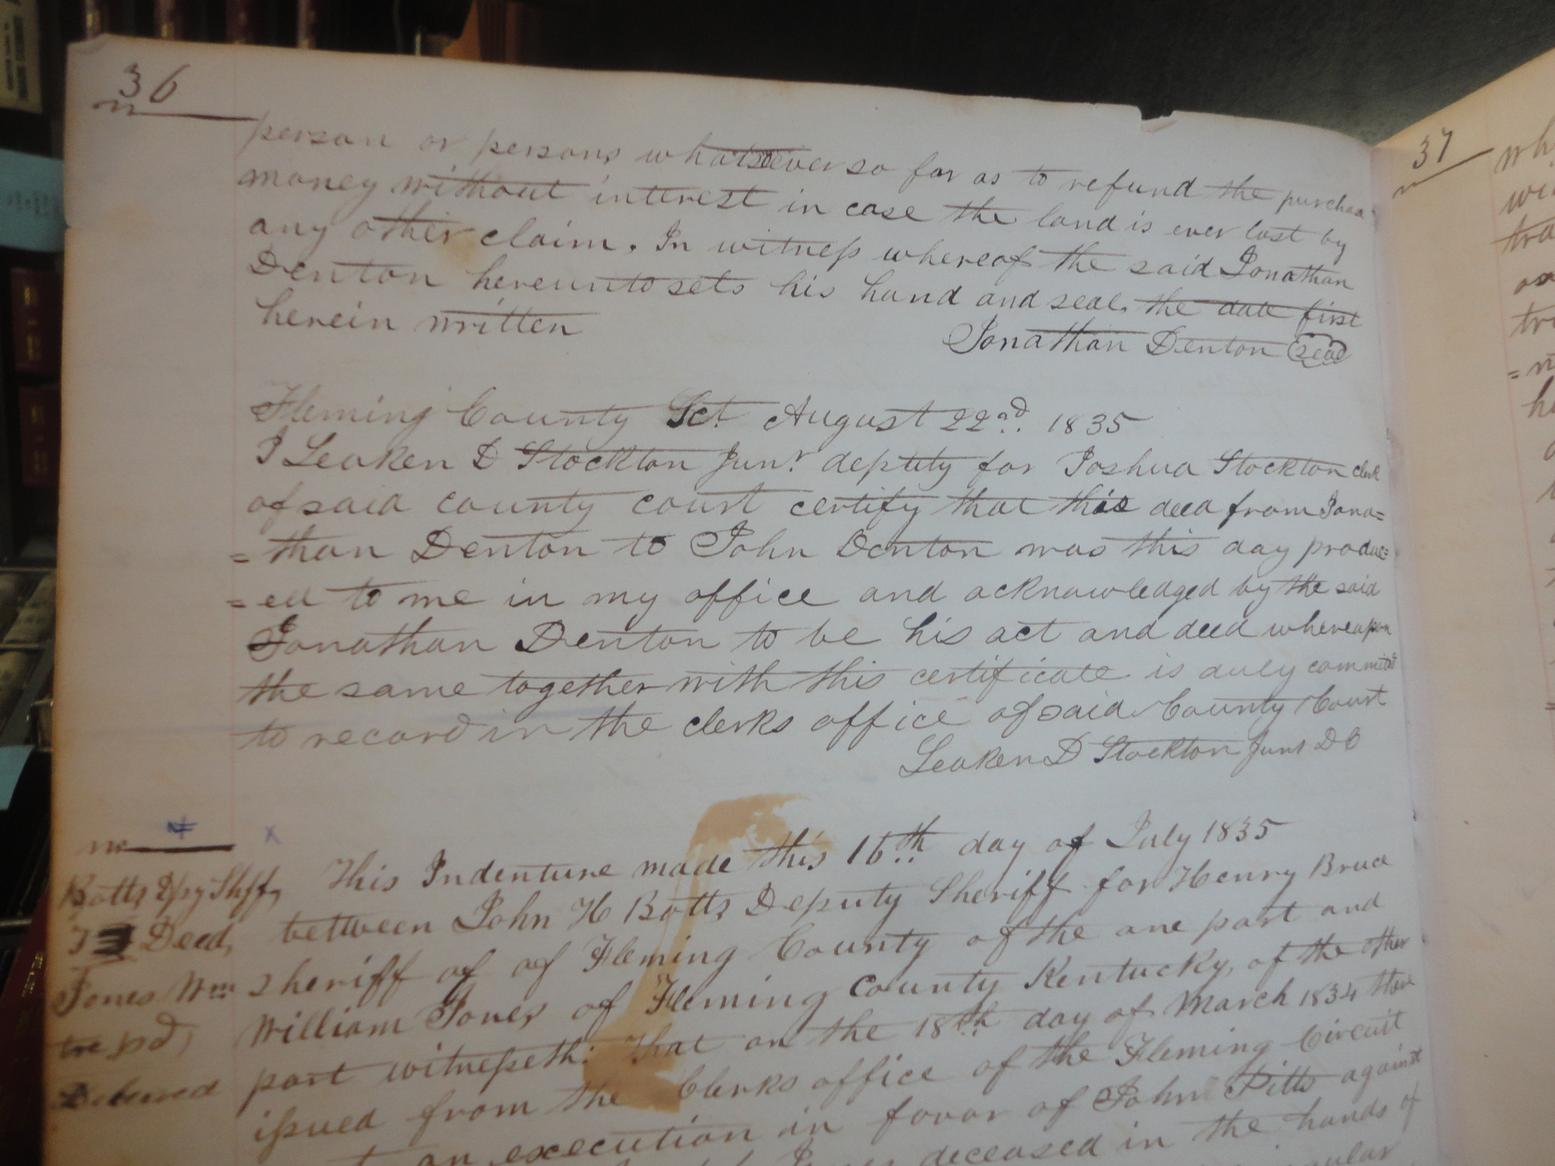 36
person or persons whatsoever so far as to refund the purchase
money without interest in case the land is ever lost by
any other claim. In witness whereof the said Jonathan
Denton hereunto sets his hand and seal. the date first
herein written
Jonathan Denton seal
Fleming County Sct August 22nd. 1835
I Leaken D Stockton Junr deputy for Joshua Stockton clerk
of said county court certify that this deed from Jona=
=than Denton to John Denton was this day produc=
=ed to me in my office and acknowledged by the said
Jonathan Denton to be his act and deed whereupon
the same together with this certificate is duly committed
to record in the clerks office of said County Court
Leaken D Stockton Junr DC
This Indenture made this 16th day of July 1835
Botts Dpy Shff,
between John H Botts Deputy Sheriff for Henry Bruce
Deed,
Sheriff of of Fleming County of the one part and
Jones Wm
William Jones of Fleming County Kentucky, of the other
pd,
part witnesseth: That on the 18th day of March 1834 there
issued from the Clerks office of the Fleming Circuit
an execution in favor of John Pitts against
deceased in the hands of
37